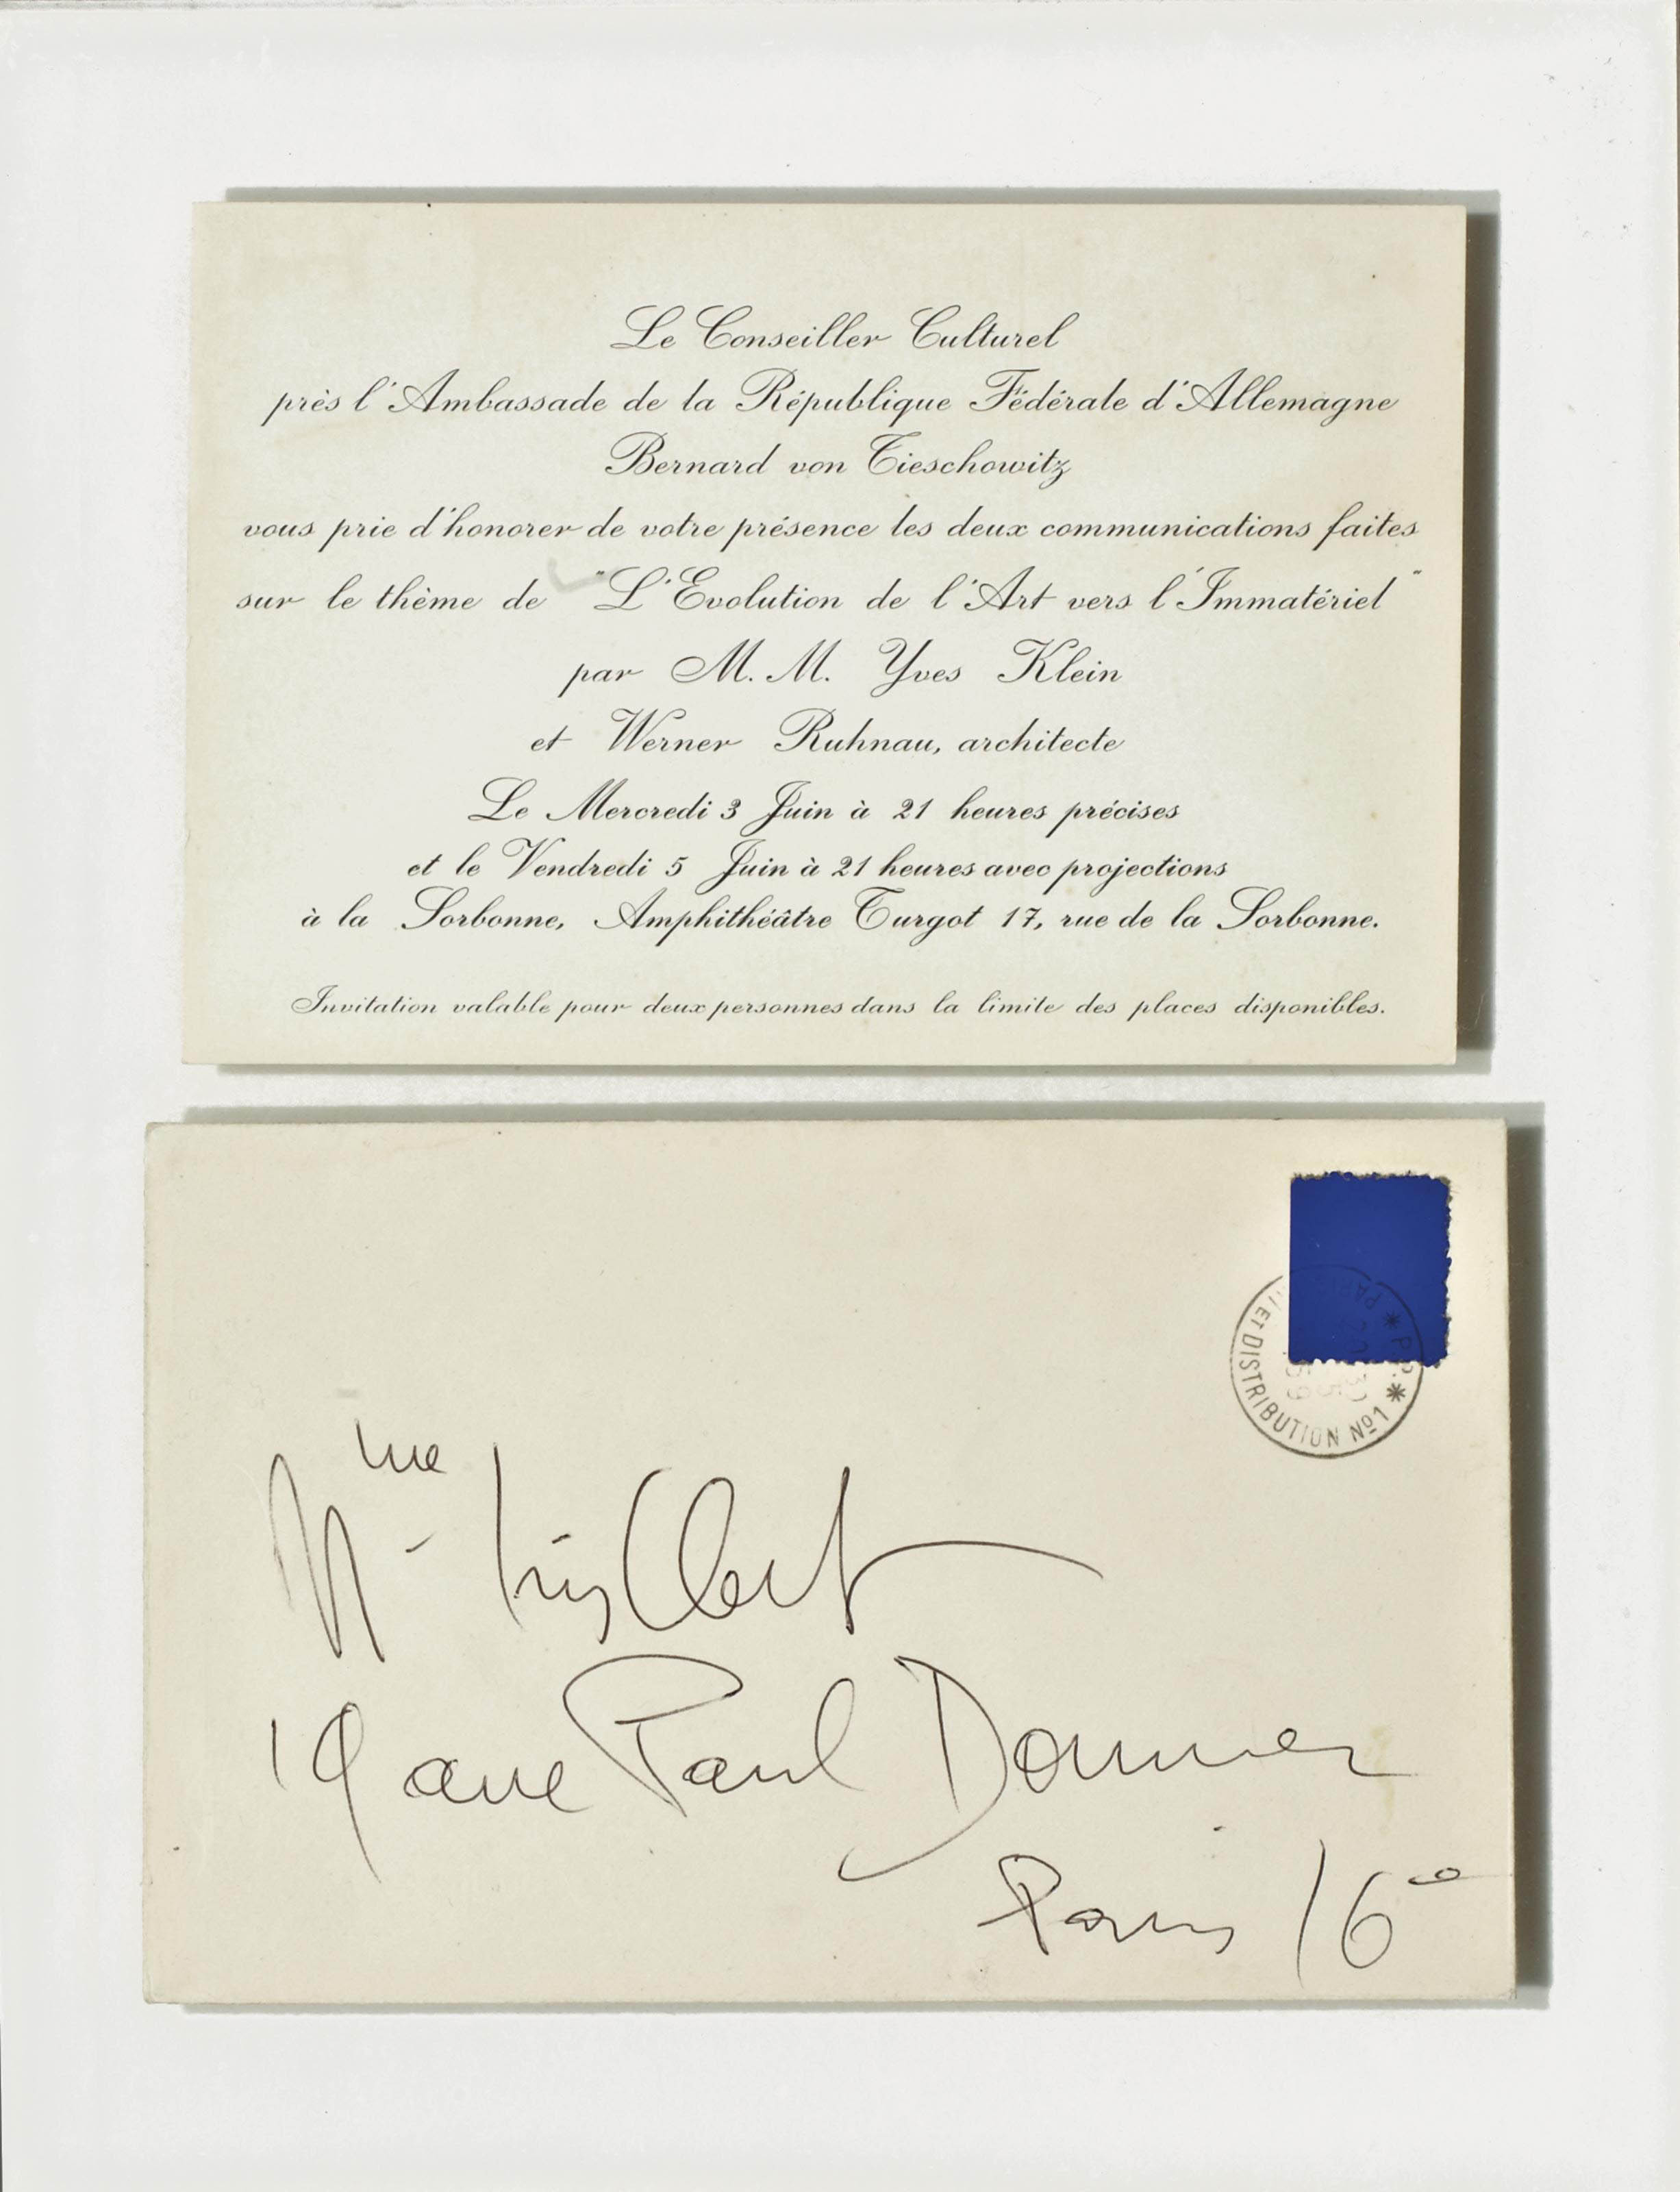 Le Conseiller Culturel
près l'Ambassade de la République Fédérale d'Allemagne
Bernard von Tieschowitz
vous prie d'honorer de votre présence les deux communications faites
sur le thème de "L'Evolution de l'Art vers l'Immatériel"
par M. M. Yves Klein
et Werner Ruhnau, architecte
Le Mercredi 3 Juin à 21 heures précises
et le Vendredi 5 Juin à 21 heures avec projections
à la Sorbonne, Amphithéâtre Turgot 17, rue de la Sorbonne.
Invitation valable pour deux personnes dans la limite des places disponibles.
ET DISTRIBUTION Nº1
Mme Iris Clert
19 ave Paul Doumer
Paris 16e